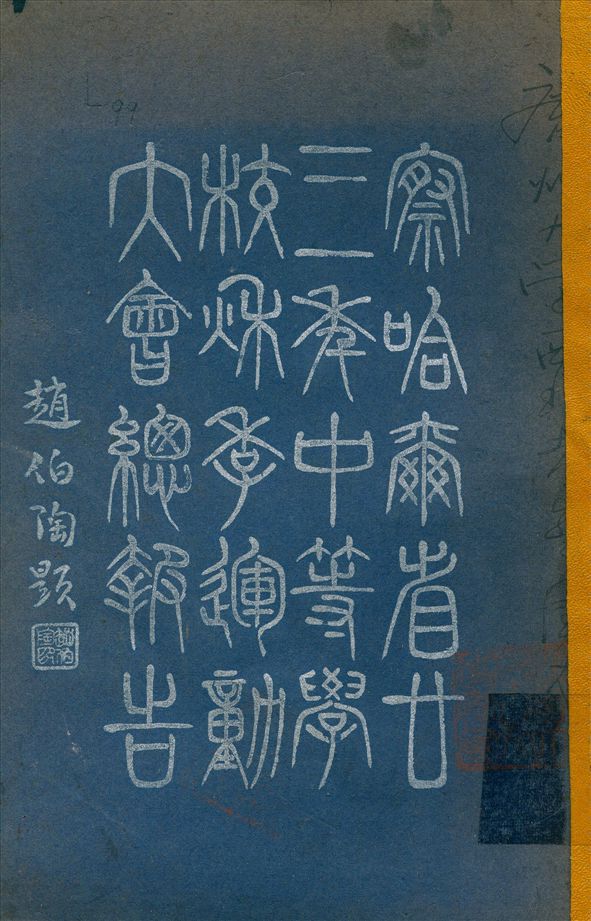 察哈爾省廿
三年中等學
校秋季運動
大會總報告
趙伯陶題
趙伯陶印